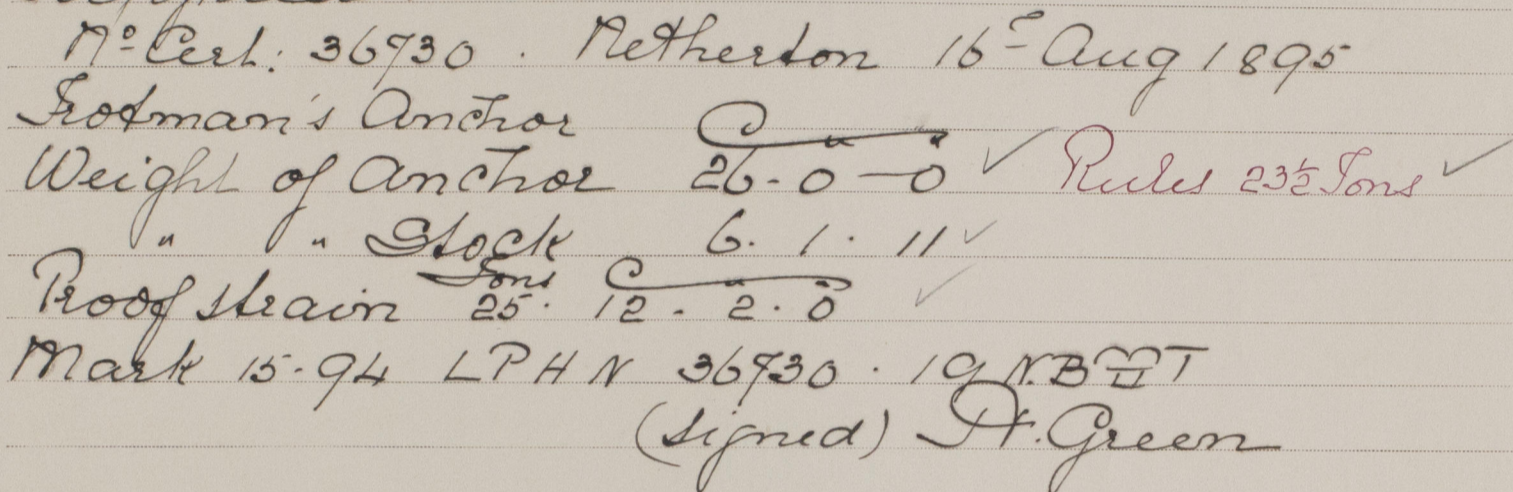 Nº Cert: 36730 . Netherton 16ᵗ Aug 1895
Trotman's Anchor C
Weight of Anchor 26 - 0 - 0 ✓ Rules 23½ Tons ✓
" " Stock 6 . 1 . 11 ✓
Proof strain Tons 25 . C 12 . 2 . 0 ✓
Mark 15.94 L P H N 36730 . 19 N.B T
(signed) H. Green